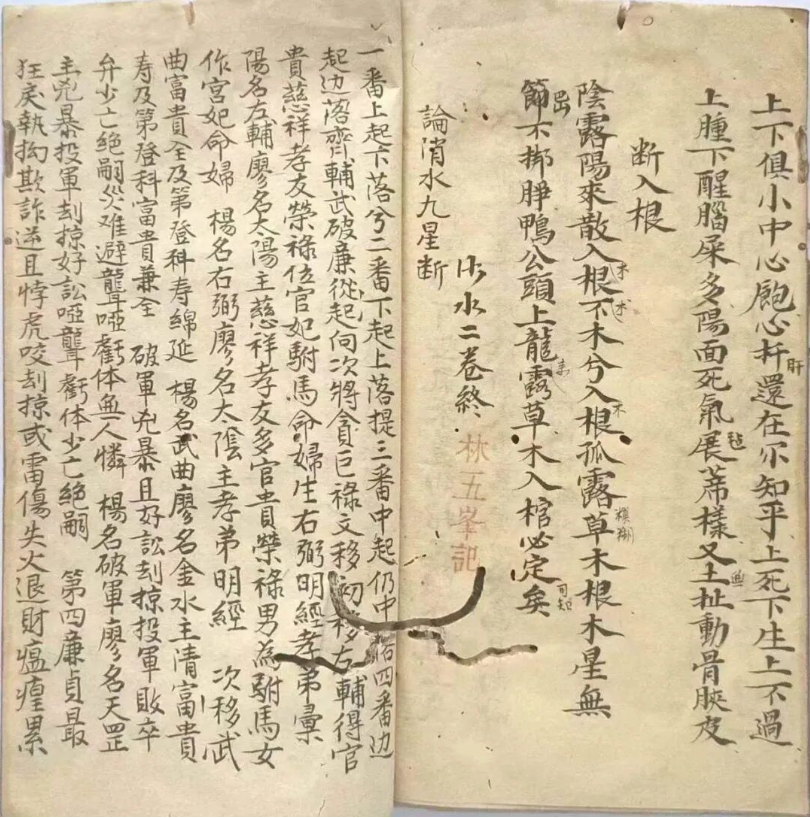 上下俱小中心飽心扦還在尔知乎上死下生上不過
肝
上腫下醒腦屎多陽面死氣展蓆樣又土扯動骨胦皮
断入根
陰露陽來散入根不木兮入根孤露草木根木星無
節不挪脖鴨公頭上龍露草木入棺必定矣
出
水二卷終
林五峯記
論消水九星断
一番上起下落兮二番下起上落提三番中起仍中四番边
起边落齊輔武破廉從起向次將貪巨祿文移初移左輔得官
貴慈祥孝友榮祿位官妃駙馬命婦生右弼明經孝弟彙
陽名左輔廖名太陽主慈祥孝友多官貴榮祿男為駙馬女
作宮妃命婦 楊名右弼廖名太陰主孝弟明經 次移武
曲富貴全及第登科寿綿延 楊名武曲廖名金水主清富貴
寿及第登科富貴兼全 破軍兇暴且好訟刦掠投軍敗卒
弁少亡絕嗣災难避聾啞虧体無人憐 楊名破軍廖名天罡
主兇暴投軍刦掠好訟啞聾虧体少亡絕嗣 第四廉貞最
狂戾執拗欺詐逆且悖虎咬刦掠或雷傷失火退財瘟𤯝累